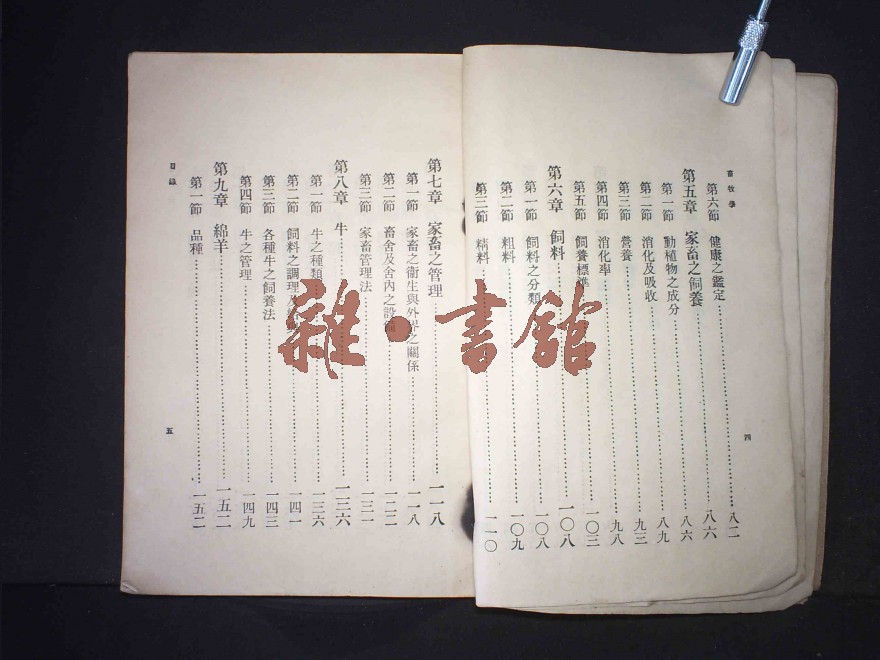 畜牧學
第六節 健康之鑑定……八二
第五章 家畜之飼養……八六
第一節 動植物之成分……八六
第二節 消化及吸收……八九
第三節 營養……九三
第四節 消化率……九八
第五節 飼養標準……一〇三
第六章 飼料……一〇八
第一節 飼料之分類……一〇八
第二節 粗料……一〇九
第三節 精料……一一〇
四
第七章 家畜之管理……一一八
第一節 家畜之衞生與外界之關係……一一八
第二節 畜舍及舍內之設備……一二二
第三節 家畜管理法……一三一
第八章 牛……一三六
第一節 牛之種類……一三六
第二節 飼料之調理及……一四一
第三節 各種牛之飼養法……一四三
第四節 牛之管理……一四九
第九章 綿羊……一五二
第一節 品種……一五二
目錄
五
雜·書館